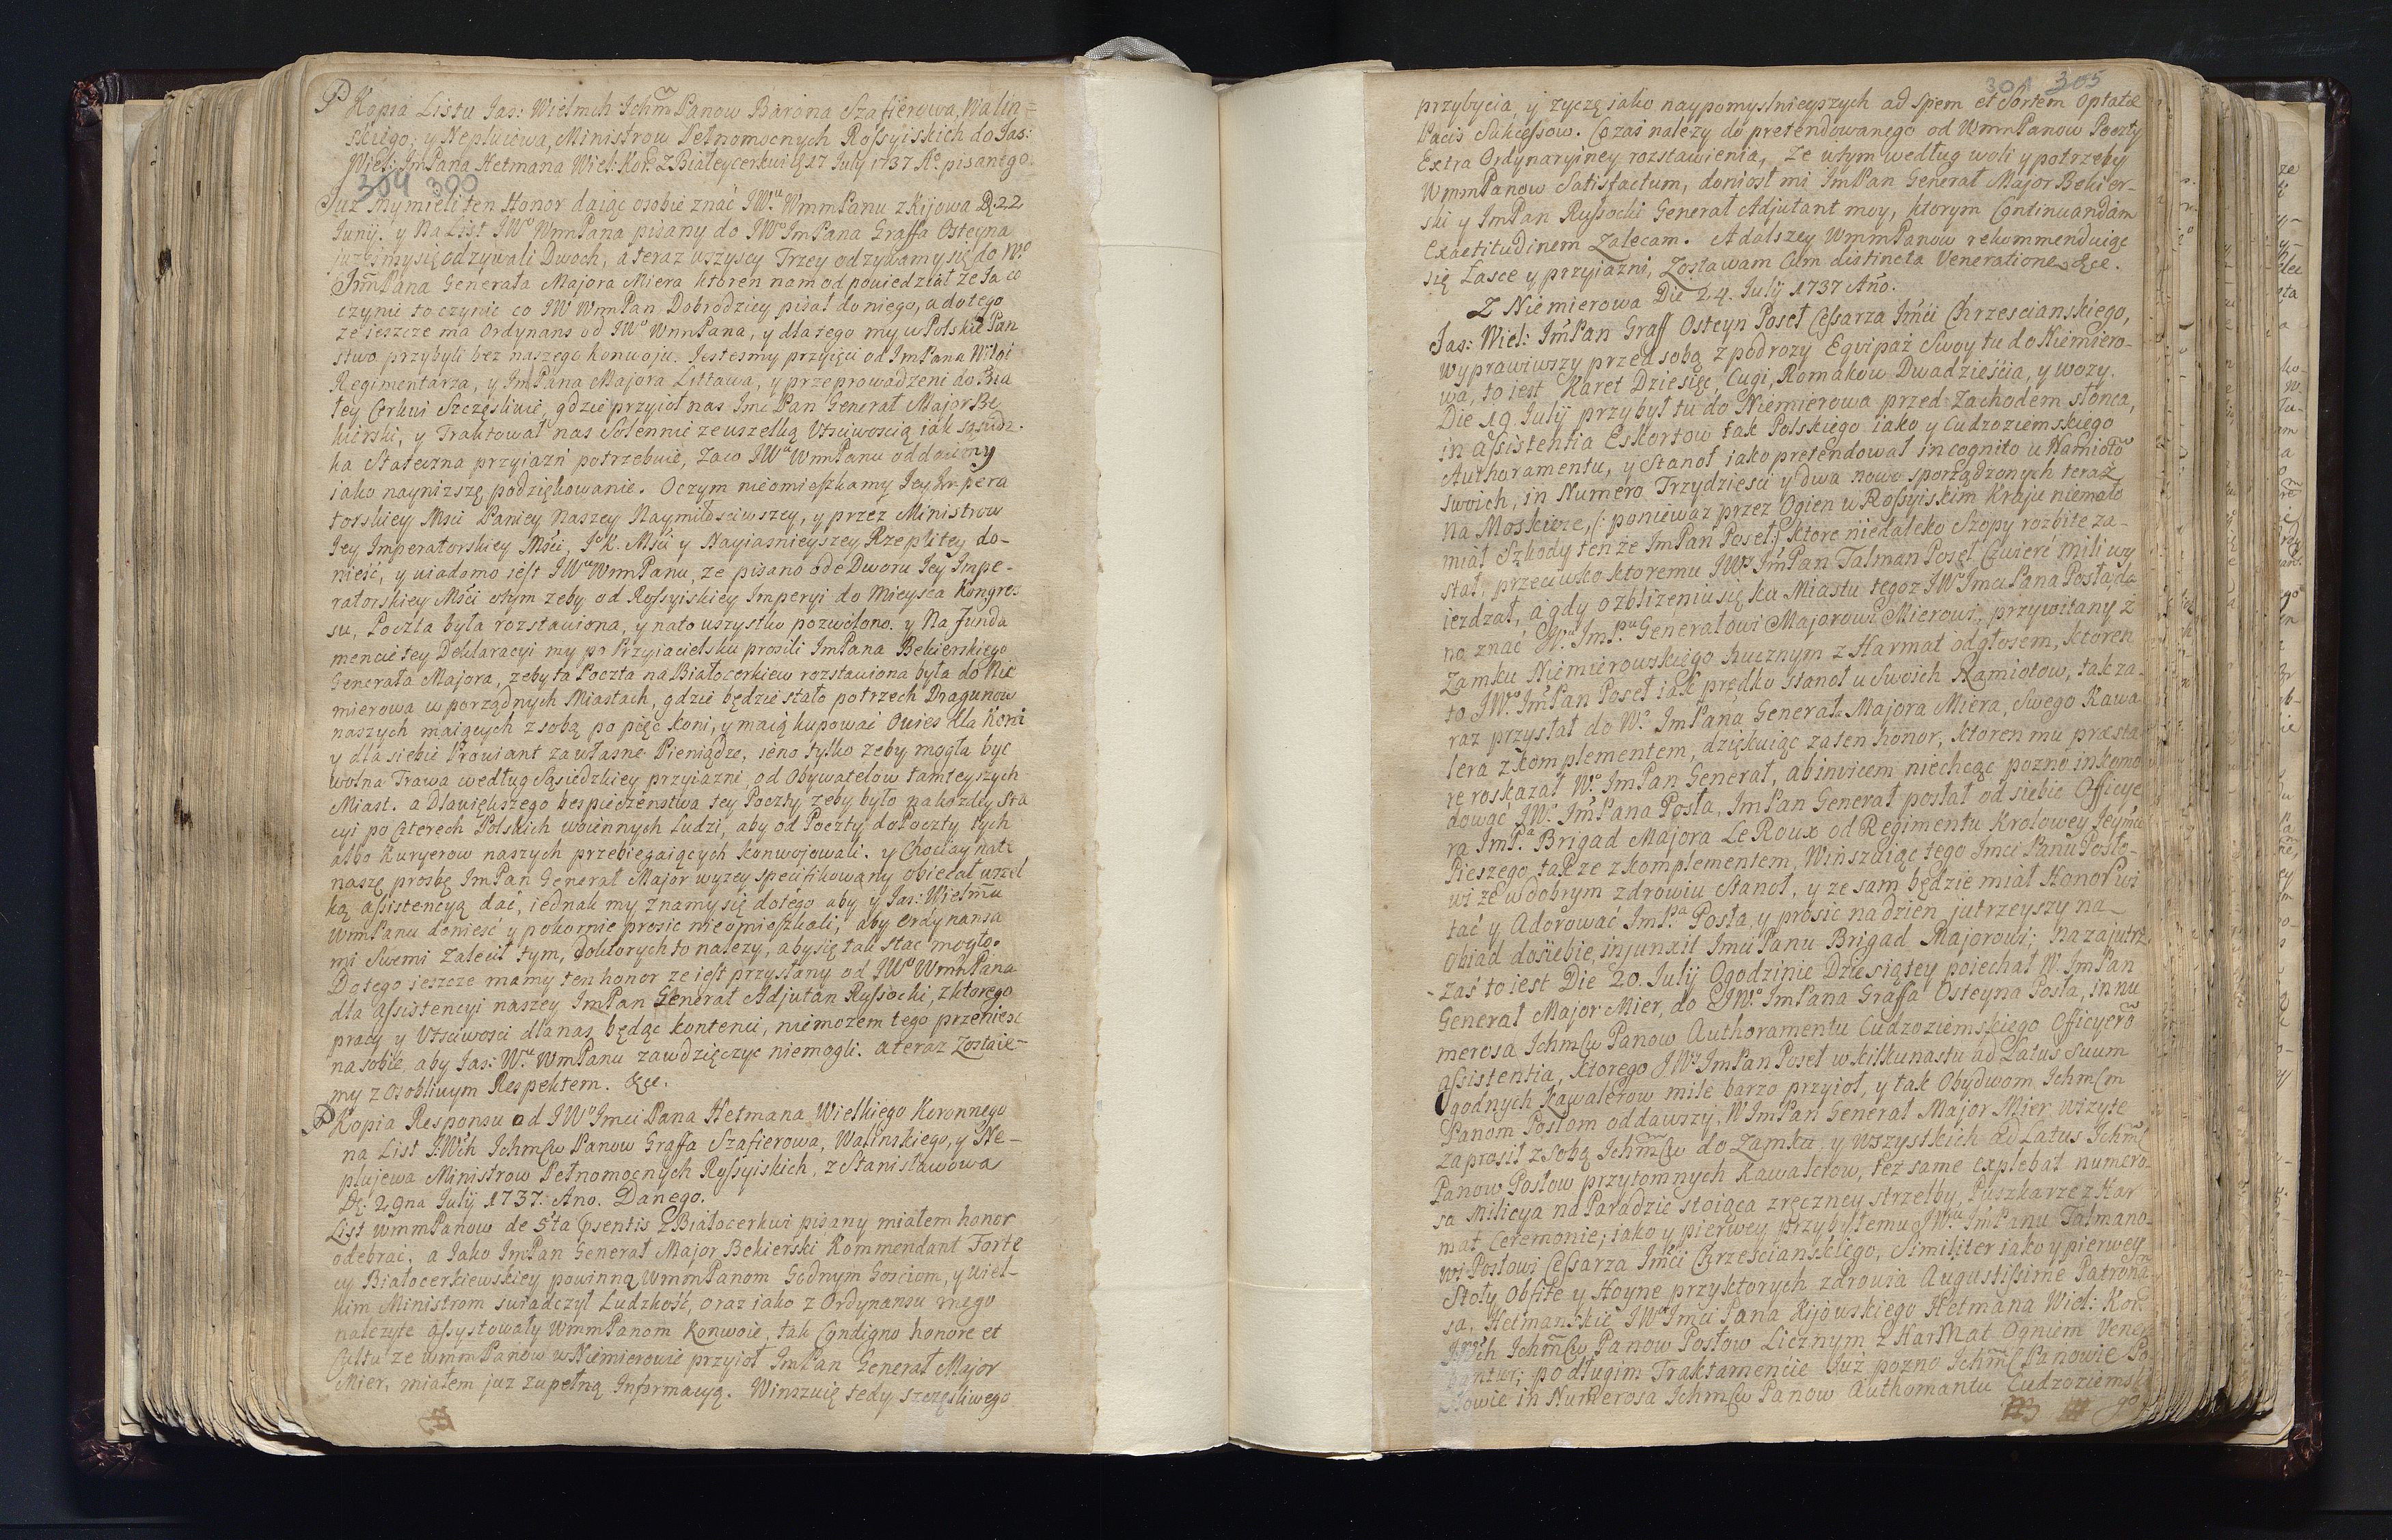 Kopia Listu Jas: Wielmch Ichm Panow Barona Szafierowa, Walin=
skiego, y Neplujewa, Ministrow Pełnomocnych Rossyiskich do Jas:
Wiel: ImPana Hetmana Wiel: Kor: z Białeycerkwi 17 July 1737 Ao pisanego.
304 300
Juz my mieli ten Honor daiąc osobie znać JWu WmmPanu z Kijowa D. 22
Junij. y Na List JWo WmPana pisany do JWo ImPana Graffa Osteyna
juześmy się odzywali Dwoch, a teraz wszyscy Trzey odzywamy się do Wo
JmPana Generała Majora Miera ktoren nam odpowiedział ze Ja co
czynie to czynie co JW WmPan Dobrodziey pisał do niego, a do tego
ze ieszcze ma Ordynans od JWo WmPana, y dla tego my w Polskie Pan
stwo przybyli bez naszego konwoju. Jestesmy przyięci od ImPana Wilgi
Regimentarza, y ImPana Majora Littawa, y przeprowadzeni do Bia
łey Cerkwi Szczęsliwie, gdzie przyioł nas Imci Pan Generał Major Be
kierski, y Traktował nas Solennie ze wszelką Vtsciwoscią iak sąsiedz-
ka Stateczna przyiazń potrzebuie, Zaco JWu WmPanu oddaiemy
iako nayniższę podziękowanie. Oczym nieomieszkamy Jey Impera
torskiey Mści Paniey Naszey Naymiłosciwszey, y przez Ministrow
Jey Imperatorskiey Mści, Jo K. Mści y Nayiasnieyszey Rzeplitey do-
nieść, y wiadomo iest JWu WmPanu, ze pisano ode Dworu Jey Impe-
ratorskiey Mści otym zeby od Rossyiskiey Imperyi do Mieysca Kongres
su, Poczta była rozstawiona, y nato wszystko pozwolono. y Na funda
mencie tey Deklaracyi my po Przyiacielsku prosili ImPana Bekierskiego
Generała Majora, zeby ta Poczta na Białocerkiew rozstawiona była do Nie
mierowa w porządnych Miastach, gdzie będzie stało po trzech Dragunow
naszych maiących z sobą po pięc koni, y maią kupowai Owies dla Koni
y dla siebie Prowiant za własne Pieniądze, ieno tylko zeby mogła byc
wolna Trawa według Sąsiedzkiey przyiazni od Obywatelow tamteyszych
Miast. a Dla większego bespieczenstwa tey Poczty, zeby było na kozdey Sta
cyi po Czterech Polskich woiennych Ludzi, aby od Poczty do Poczty tych
albo Kuryerow naszych przebiegaiących konwojowali. y Chociay na te
naszę prosbę ImPan Generał Major wyzey specifikowany obiecał wszel
ką assistencyą dać, iednak my znamy się do tego aby y Jas: Wielmu
WmPanu donieść y pokornie prosic nieomieszkali, aby Ordynansa
mi Swemi Zalecił tym, do ktorych to nalezy, aby się tak stac mogło.
Do tego ieszcze mamy ten honor ze iest przysłany od JWo WmPana
dla assistencyi naszey ImPan Generał Adjutan Russocki, z ktorego
pracy y Vtsciwosci dla nas będąc kontenci, niemozem tego przeniesć
na sobie, aby Jas: Wu WmPanu zawdzięczyc niemogli. a teraz Zostaie-
my z osobliwym Respektem. &c.
Kopia Responsu od JWo Imci Pana Hetmana Wielkiego Koronnego
na List JWch Ichmćw Panow Graffa Szafierowa, Walinskiego, y Ne-
plujewa Ministrow Pełnomocnych Rossyiskich, z Stanisławowa
D. 29na July 1737. Ano. Danego.
List WmmPanow de 5ta psentis z Białocerkwi pisany miałem honor
odebrać, a Iako ImPan Generał Major Bekierski Kommendant Forte
cy Białocerkiewskiey powinną WmmPanom Godnym Gosciom, y Wiel-
kim Ministrom swiadczył Ludzkość, oraz iako z Ordynansu mego
nalezyte assystowały WmmPanom Konwoie, tak Condigno honore et
Cultu ze WmmPanow w Niemierowie przyioł ImPan Generał Major
Mier, miałem juz zupełną Informacyą. Winszuię tedy szczęsliwego
301 305
przybycia, y zyczę iako naypomyslnieyszych ad Spem et Sortem Optatæ
Pacis Sukcessow. Co zas nalezy do pretendowanego od WmmPanow Poczty
Extra Ordynaryiney rozstawienia, Ze w tym według woli y potrzeby
WmmPanow Satisfactum, doniosł mi ImPan Generał Major Bekier-
ski y ImPan Russocki Generał Adjutant moy, ktorym Continuandam
Exactitudinem Zalecam. A dalszey WmmPanow rekommenduiąc
się Łasce y przyiazni, Zostawam Cum distincta Veneratione &c.
Z Niemierowa Die 24. July 1737 Ano.
Jas: Wiel: ImPan Graff Osteyn Poseł Cessarza Imci Chrzescianskiego,
Wyprawiwszy przed sobą z podrozy Eqvipaż Swoy tu do Niemiero-
wa, to iest Karet Dziesięć, Cugi, Romakow Dwadzieścia, y wozy.
Die 19. July przybył tu do Niemierowa przed Zachodem słonca,
in assistentia Eskortow tak Polskiego iako y Cudzoziemskiego
Authoramentu, y Stanoł iako pretendował incognito u Namiotow
swoich, in Numero Trzydziesci y dwa nowo sporządzonych teraz
na Moskwie, (: poniewaz przez Ogien w Rossyiskim Kraju niemało
miał Szkody tenze ImPan Poseł :) ktore niedaleko Szopy rozbite za-
stał, przeciwko ktoremu JWo ImPan Talman Poseł Cwierć mili wy
iezdzał, a gdy o zblizeniu się ku Miastu tegoz JWo Imci Pana Posła da
no znać Wu ImPu Generałowi Majorowi Mierowi, przywitany z
Zamku Niemierowskiego hucznym z Harmat odgłosem, ktoren
to JWo ImPan Poseł iak prędko stanoł u Swoich Namiotow, tak za-
raz przysłał do Wo ImPana Generała Majora Miera, Swego Kawa
lera z komplementem, dziękuiąc za ten honor, ktoren mu præsta
re roskazał Wo ImPan Generał, abinvicem niechcąc pozno inkomo
dować JWo ImPana Posła, ImPan Generał posłał od siebie Officye
ra ImPa Brigad Majora Le Roux od Regimentu Krolowey Jeymci
Pieszego, takze z komplementem, Winszuiąc tego Imci Panu Posło-
wi ze w dobrym zdrowiu Stanoł, y ze sam będzie miał Honor wi
tać y Adorować ImPa Posła, y prosic na dzien jutrzeyszy na
obiad do siebie, injunxit Imci Panu Brigad Majorowi; nazajutrz
zaś to iest Die 20. July O godzinie Dziesiątey poiechał W. ImPan
Generał Major Mier, do JWo ImPana Graffa Osteyna Posła, in nu
merosa Ichmćw Panow Authoramentu Cudzoziemskiego Officyerow
assistentia, ktorego JWo ImPan Poseł w kilkunastu ad Latus Suum
godnych Kawalerow mile barzo przyioł, y tak Obydwom Ichmćm
Panom Posłom oddawszy, W ImPan Generał Major Mier wizyte
zaprosił z sobą Ichmćw do Zamku, y wszystkich ad Latus Ichmć
Panow Posłow przytomnych Kawalerow, też same explebat numero
sa Milicya na Paradzie stoiąca z ręczney strzelby, Puszkarze z Har
mat Ceremonie, iako y pierwey Przybyłemu JWu ImPanu Talmano-
wi Posłowi Cessarza Imci Chrzescianskiego, Similiter iako y pierwey
Stoły Obfite y Hoyne przy ktorych zdrowia Augustissime Patrona
sa, Hetmanskie JWo Imci Pana Kijowskiego Hetmana Wiel: Kor:
JWch Ichmćw Panow Posłow Licznym z Harmat Ogniem Vene
bantur, po długim Traktamencie Już pozno Ichmć Panowie Po
słowie in Numerosa Ichmćw Panow Authomantu Cudzoziemskie
go